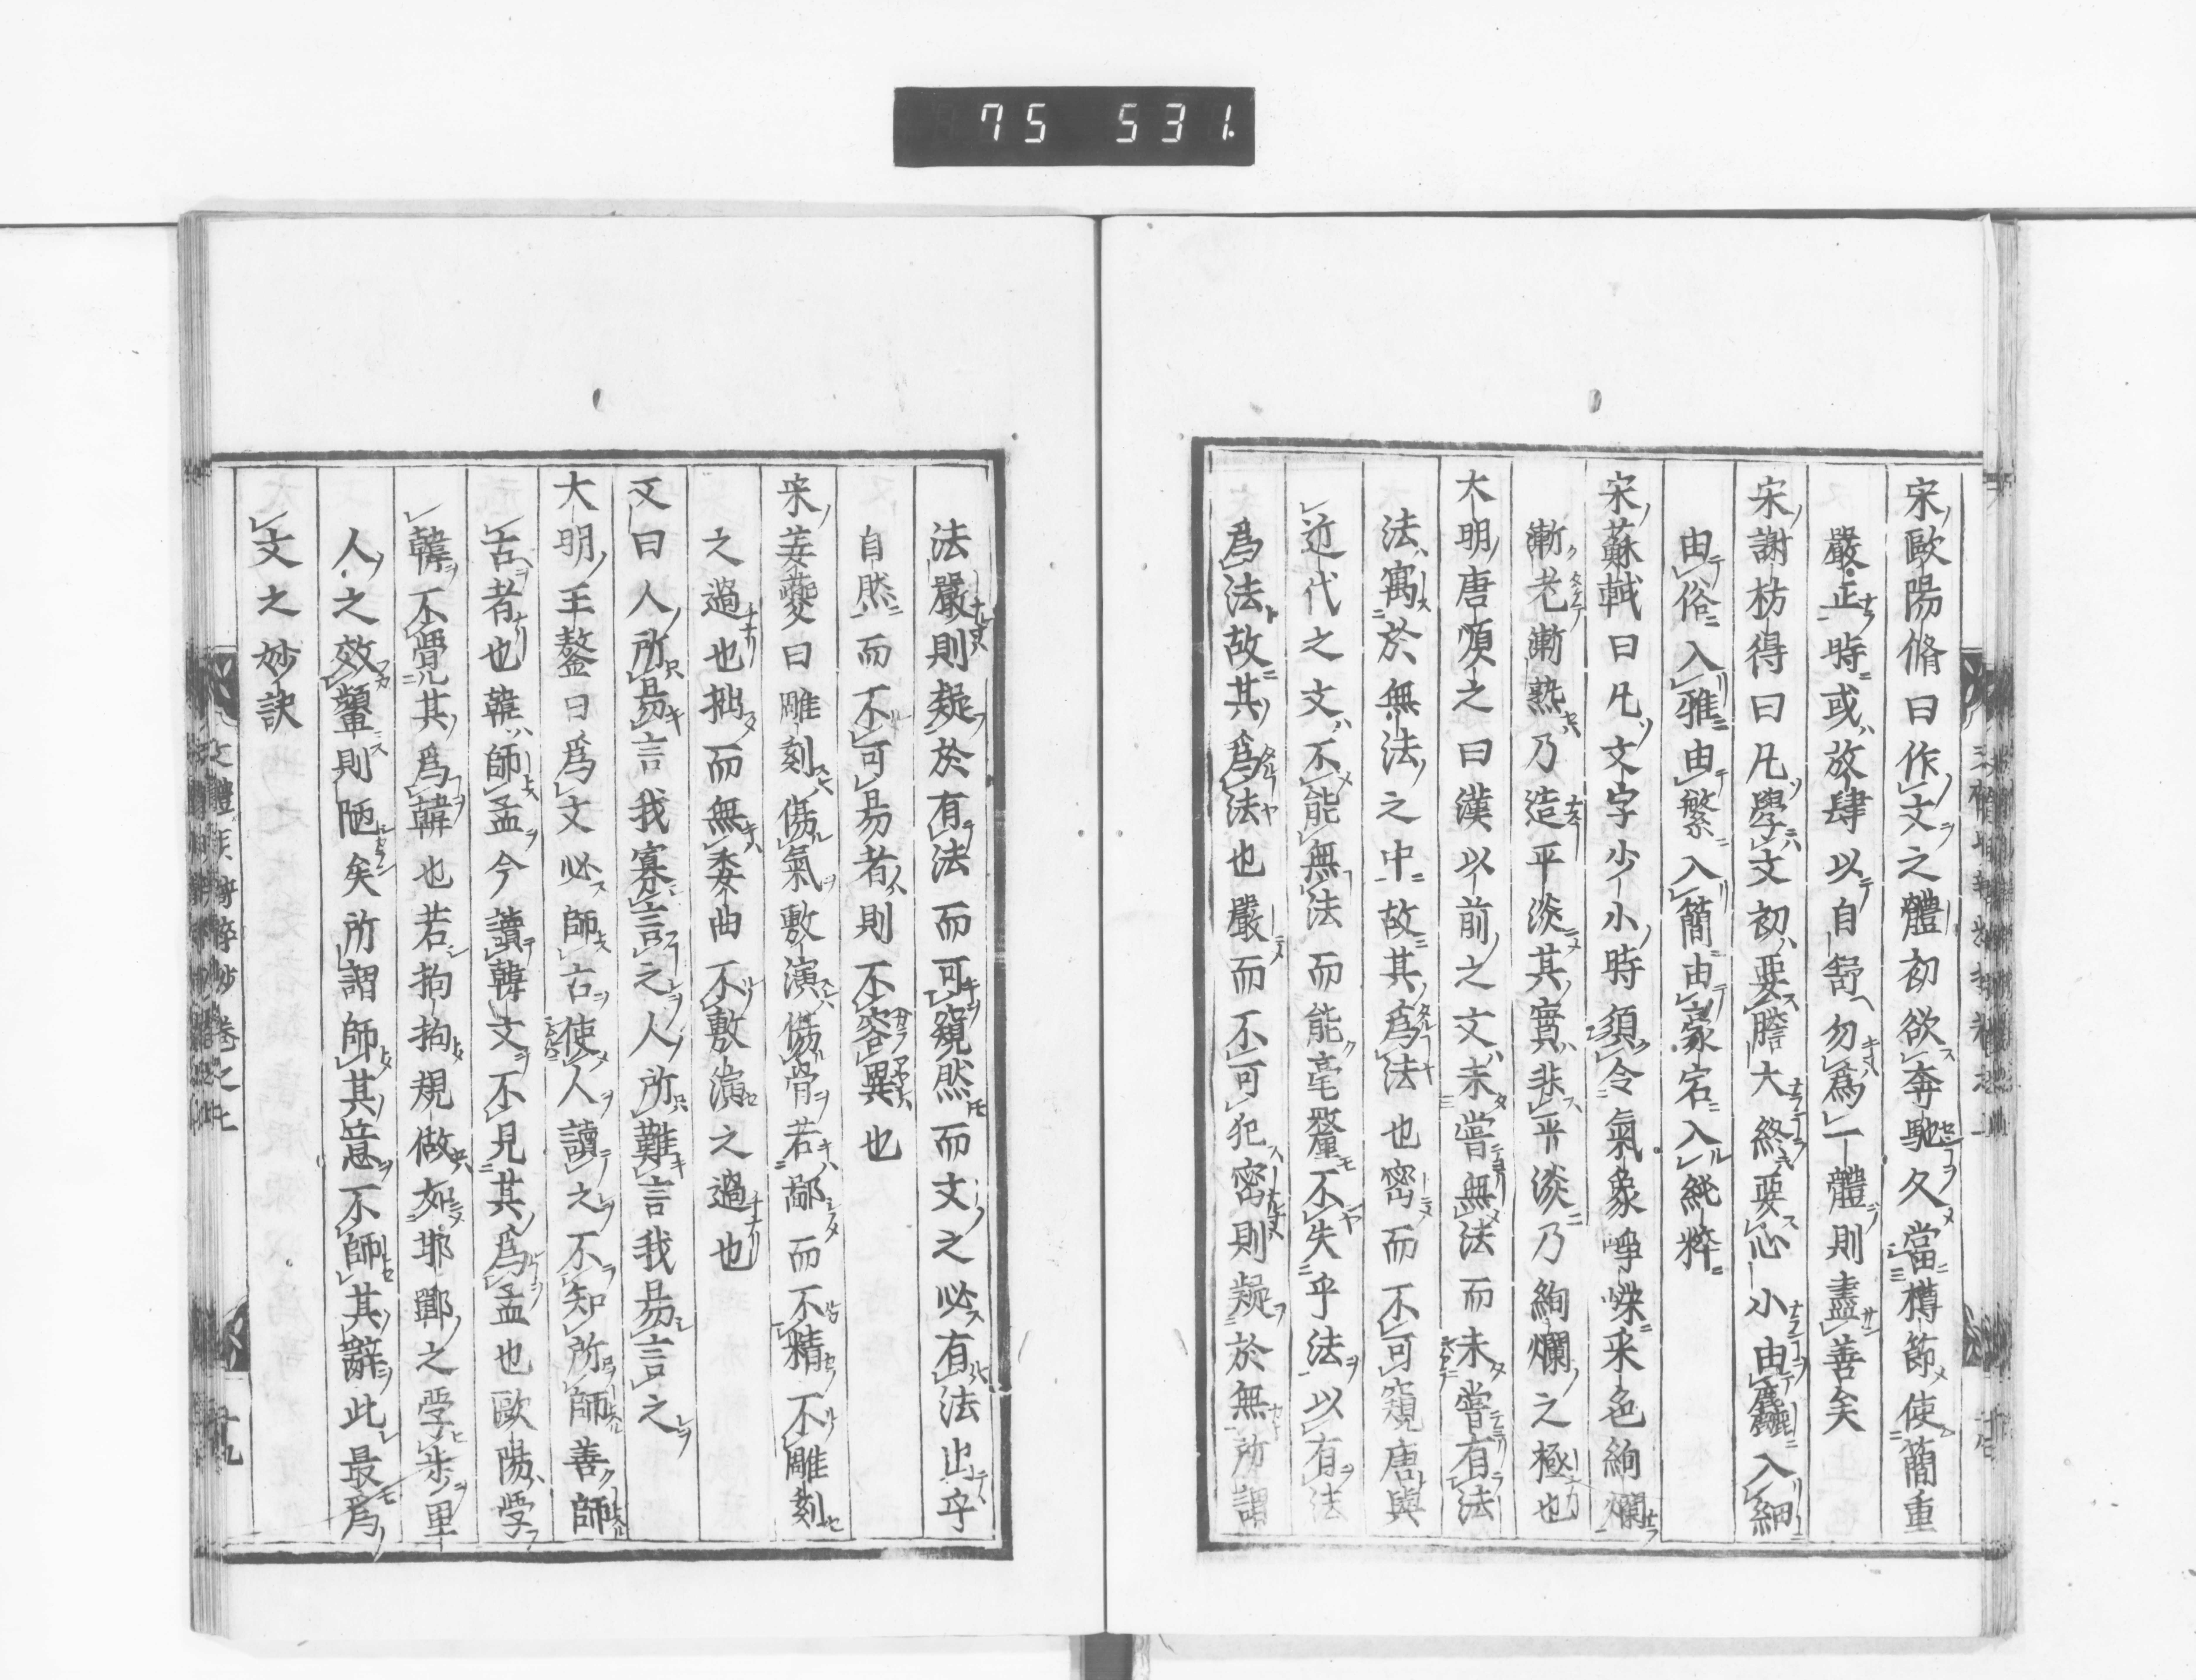 75 531.
宋歐陽脩曰作文之體初欲奔馳久當樽節使簡重
嚴正時或放肆以自舒勿爲一體則盡善矣
宋謝枋得曰凡學文初要膽大終要心小由麤入細
由俗入雅由繁入簡由豪宕入純粹
宋蘇軾曰凡文字少小時須令氣象崢嶸采色絢爛
漸老漸熟乃造平淡其實非平淡乃絢爛之極也
大明唐順之曰漢以前之文未嘗無法而未嘗有法
法寓於無法之中故其爲法也密而不可窺唐與
近代之文不能無法而能毫釐不失乎法以有法
爲法故其爲法也嚴而不可犯密則疑於無所謂
法嚴則疑於有法而可窺然而文之必有法出乎
自然而不可易者則不容異也
宋姜夔曰雕刻傷氣敷演傷骨若鄙而不精不雕刻
之過也拙而無委曲不敷演之過也
又曰人所易言我寡言之人所難言我易言之
大明王鏊曰爲文必師古使人讀之不知所師善師
古者也韓師孟今讀韓文不見其爲孟也歐陽學
韓不覺其爲韓也若拘拘規倣如邯鄲之學步里
人之效顰則陋矣所謂師其意不師其辭此最爲
文之妙訣